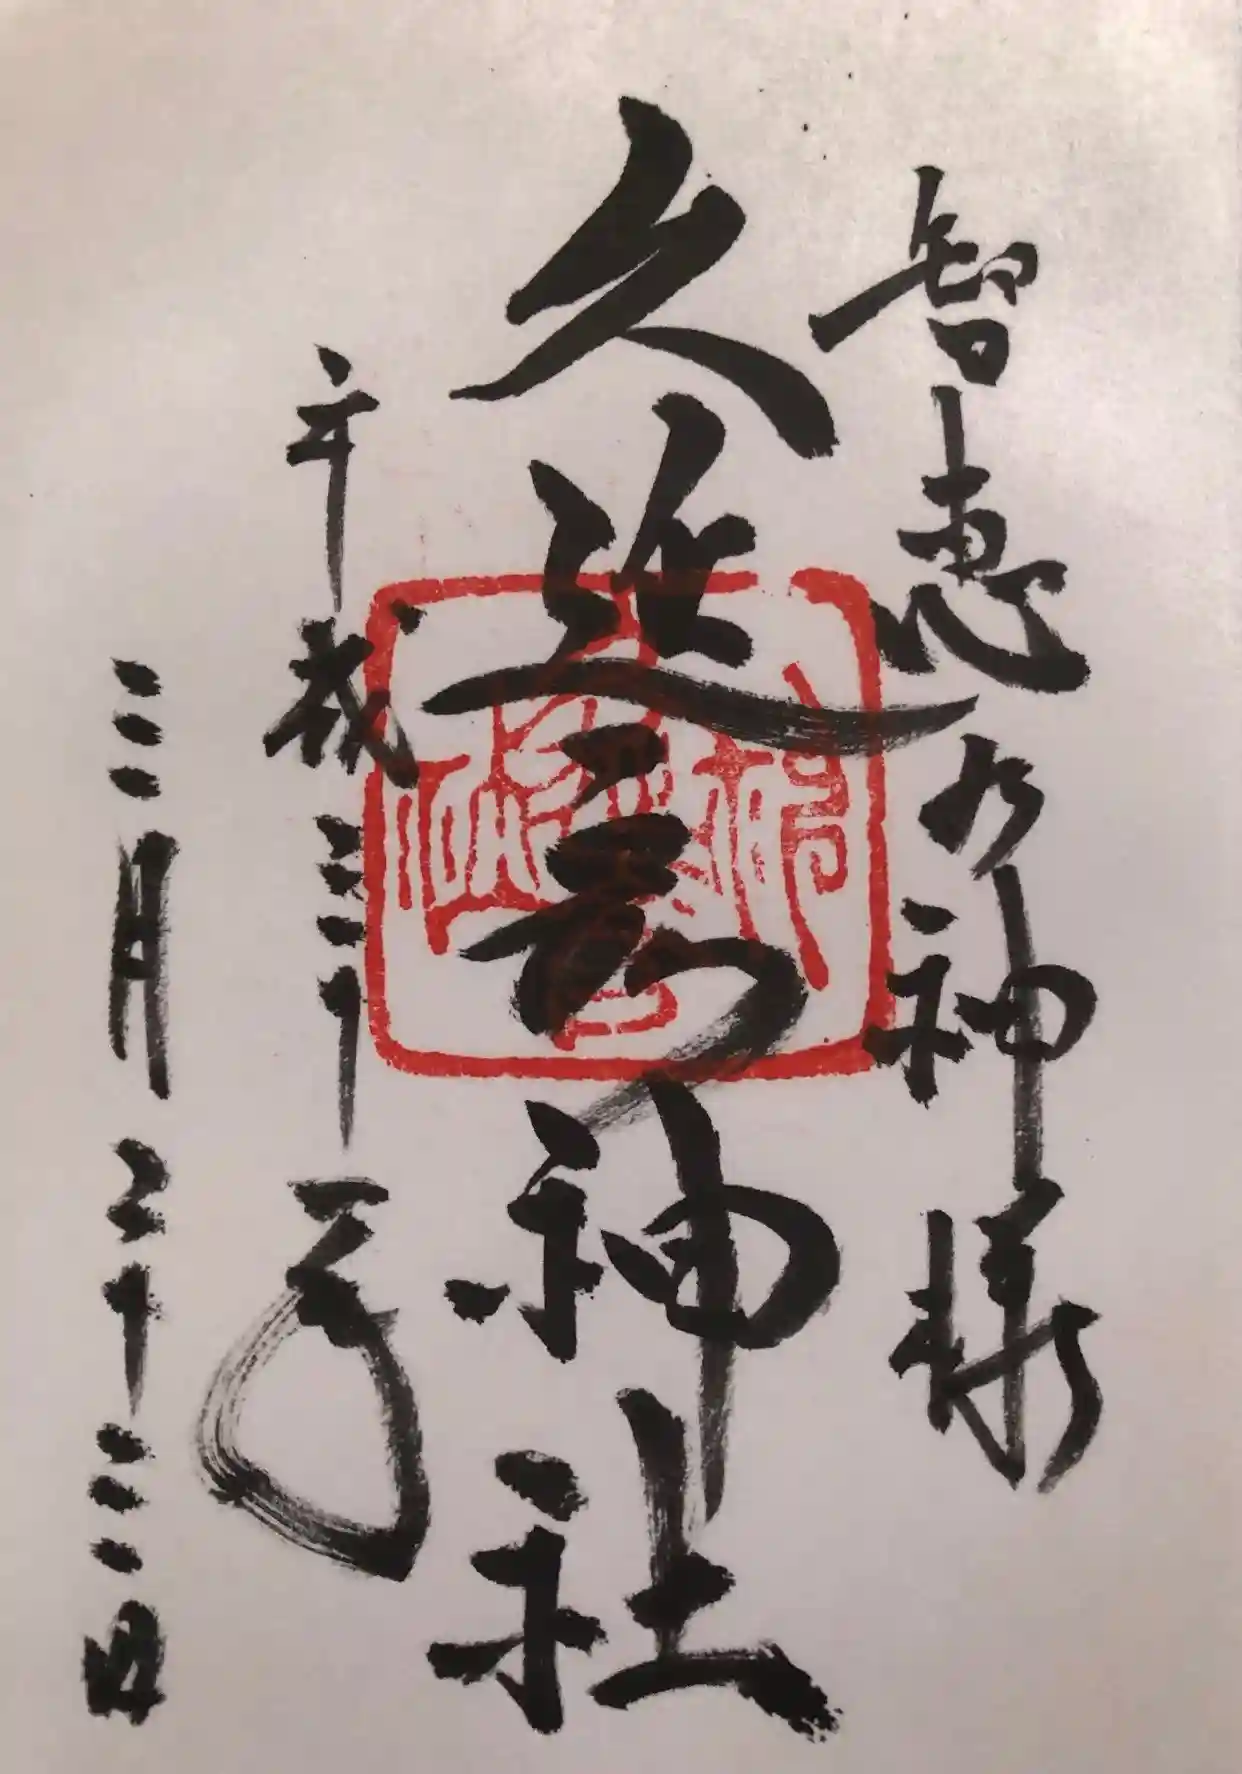 智恵の神様
久延彦神社
平成三十一年
三月二十三日